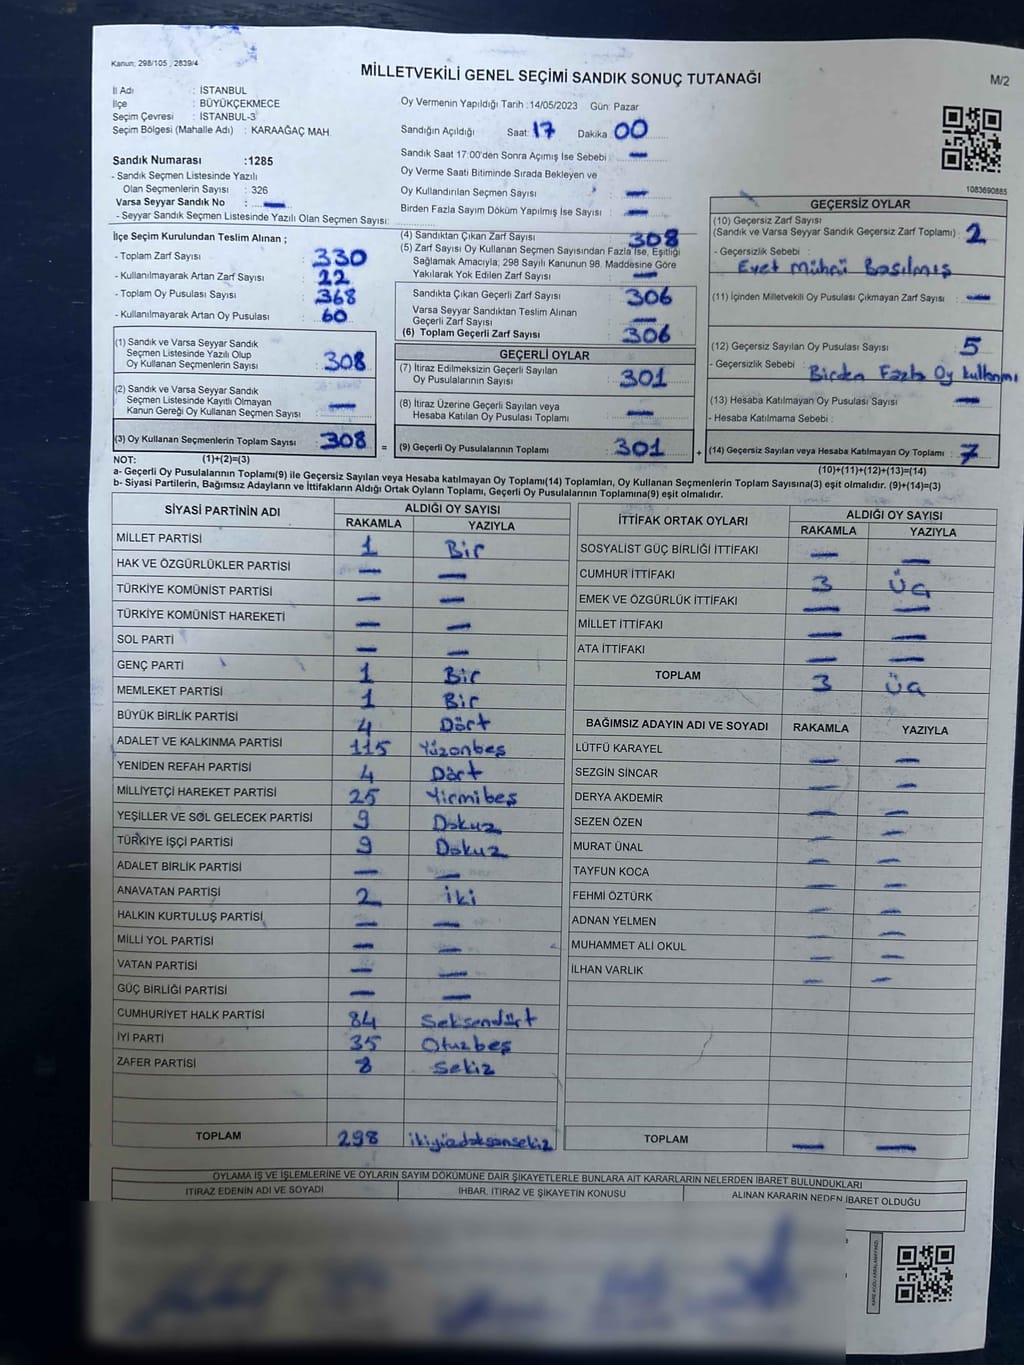 Kanun; 298/105 , 2839/4
MİLLETVEKİLİ GENEL SEÇİMİ SANDIK SONUÇ TUTANAĞI
M/2
İl Adı : İSTANBUL
İlçe : BÜYÜKÇEKMECE
Seçim Çevresi : İSTANBUL-3
Seçim Bölgesi (Mahalle Adı) : KARAAĞAÇ MAH.
Sandık Numarası :1285
- Sandık Seçmen Listesinde Yazılı
Olan Seçmenlerin Sayısı : 326
Varsa Seyyar Sandık No : —
- Seyyar Sandık Seçmen Listesinde Yazılı Olan Seçmen Sayısı:
Oy Vermenin Yapıldığı Tarih :14/05/2023 Gün: Pazar
Sandığın Açıldığı Saat: 17 Dakika 00
Sandık Saat 17:00'den Sonra Açımış İse Sebebi : —
Oy Verme Saati Bitiminde Sırada Bekleyen ve
Oy Kullandırılan Seçmen Sayısı : —
Birden Fazla Sayım Döküm Yapılmış İse Sayısı : —
1083690885
İlçe Seçim Kurulundan Teslim Alınan ;
- Toplam Zarf Sayısı : 330
- Kullanılmayarak Artan Zarf Sayısı : 22
- Toplam Oy Pusulası Sayısı : 368
- Kullanılmayarak Artan Oy Pusulası : 60
(1) Sandık ve Varsa Seyyar Sandık
Seçmen Listesinde Yazılı Olup
Oy Kullanan Seçmenlerin Sayısı : 308
(2) Sandık ve Varsa Seyyar Sandık
Seçmen Listesinde Kayıtlı Olmayan
Kanun Gereği Oy Kullanan Seçmen Sayısı : —
(3) Oy Kullanan Seçmenlerin Toplam Sayısı : 308 =
(4) Sandıktan Çıkan Zarf Sayısı : 308
(5) Zarf Sayısı Oy Kullanan Seçmen Sayısından Fazla İse, Eşitliği
Sağlamak Amacıyla; 298 Sayılı Kanunun 98. Maddesine Göre
Yakılarak Yok Edilen Zarf Sayısı : —
Sandıkta Çıkan Geçerli Zarf Sayısı : 306
Varsa Seyyar Sandıktan Teslim Alınan
Geçerli Zarf Sayısı : —
(6) Toplam Geçerli Zarf Sayısı : 306
GEÇERLİ OYLAR
(7) İtiraz Edilmeksizin Geçerli Sayılan
Oy Pusulalarının Sayısı : 301
(8) İtiraz Üzerine Geçerli Sayılan veya
Hesaba Katılan Oy Pusulası Toplamı : —
(9) Geçerli Oy Pusulalarının Toplamı : 301 +
GEÇERSİZ OYLAR
(10) Geçersiz Zarf Sayısı
(Sandık ve Varsa Seyyar Sandık Geçersiz Zarf Toplamı) : 2
- Geçersizlik Sebebi :
Evet Mührü Basılmış
(11) İçinden Milletvekili Oy Pusulası Çıkmayan Zarf Sayısı : —
(12) Geçersiz Sayılan Oy Pusulası Sayısı : 5
- Geçersizlik Sebebi : Birden Fazla Oy kullanımı
(13) Hesaba Katılmayan Oy Pusulası Sayısı : —
- Hesaba Katılmama Sebebi :
(14) Geçersiz Sayılan veya Hesaba Katılmayan Oy Toplamı : 7
NOT: (1)+(2)=(3) (10)+(11)+(12)+(13)=(14)
a- Geçerli Oy Pusulalarının Toplamı(9) ile Geçersiz Sayılan veya Hesaba katılmayan Oy Toplamı(14) Toplamları, Oy Kullanan Seçmenlerin Toplam Sayısına(3) eşit olmalıdır. (9)+(14)=(3)
b- Siyasi Partilerin, Bağımsız Adayların ve İttifakların Aldığı Ortak Oyların Toplamı, Geçerli Oy Pusulalarının Toplamına(9) eşit olmalıdır.
SİYASİ PARTİNİN ADI ALDIĞI OY SAYISI
RAKAMLA YAZIYLA
MİLLET PARTİSİ 1 Bir
HAK VE ÖZGÜRLÜKLER PARTİSİ — —
TÜRKİYE KOMÜNİST PARTİSİ — —
TÜRKİYE KOMÜNİST HAREKETİ — —
SOL PARTİ — —
GENÇ PARTİ 1 Bir
MEMLEKET PARTİSİ 1 Bir
BÜYÜK BİRLİK PARTİSİ 4 Dört
ADALET VE KALKINMA PARTİSİ 115 Yüzonbeş
YENİDEN REFAH PARTİSİ 4 Dört
MİLLİYETÇİ HAREKET PARTİSİ 25 Yirmibeş
YEŞİLLER VE SOL GELECEK PARTİSİ 9 Dokuz
TÜRKİYE İŞÇİ PARTİSİ 9 Dokuz
ADALET BİRLİK PARTİSİ — —
ANAVATAN PARTİSİ 2 iki
HALKIN KURTULUŞ PARTİSİ — —
MİLLİ YOL PARTİSİ — —
VATAN PARTİSİ — —
GÜÇ BİRLİĞİ PARTİSİ — —
CUMHURİYET HALK PARTİSİ 84 Seksendört
İYİ PARTİ 35 Otuzbeş
ZAFER PARTİSİ 8 Sekiz
TOPLAM 298 ikiyüzdoksansekiz
İTTİFAK ORTAK OYLARI ALDIĞI OY SAYISI
RAKAMLA YAZIYLA
SOSYALİST GÜÇ BİRLİĞİ İTTİFAKI — —
CUMHUR İTTİFAKI 3 Üç
EMEK VE ÖZGÜRLÜK İTTİFAKI — —
MİLLET İTTİFAKI — —
ATA İTTİFAKI — —
TOPLAM 3 Üç
BAĞIMSIZ ADAYIN ADI VE SOYADI RAKAMLA YAZIYLA
LÜTFÜ KARAYEL — —
SEZGİN SİNCAR — —
DERYA AKDEMİR — —
SEZEN ÖZEN — —
MURAT ÜNAL — —
TAYFUN KOCA — —
FEHMİ ÖZTÜRK — —
ADNAN YELMEN — —
MUHAMMET ALİ OKUL — —
İLHAN VARLIK — —
TOPLAM — —
OYLAMA İŞ VE İŞLEMLERİNE VE OYLARIN SAYIM DÖKÜMÜNE DAİR ŞİKAYETLERLE BUNLARA AİT KARARLARIN NELERDEN İBARET BULUNDUKLARI
İTİRAZ EDENİN ADI VE SOYADI İHBAR, İTİRAZ VE ŞİKAYETİN KONUSU ALINAN KARARIN NEDEN İBARET OLDUĞU